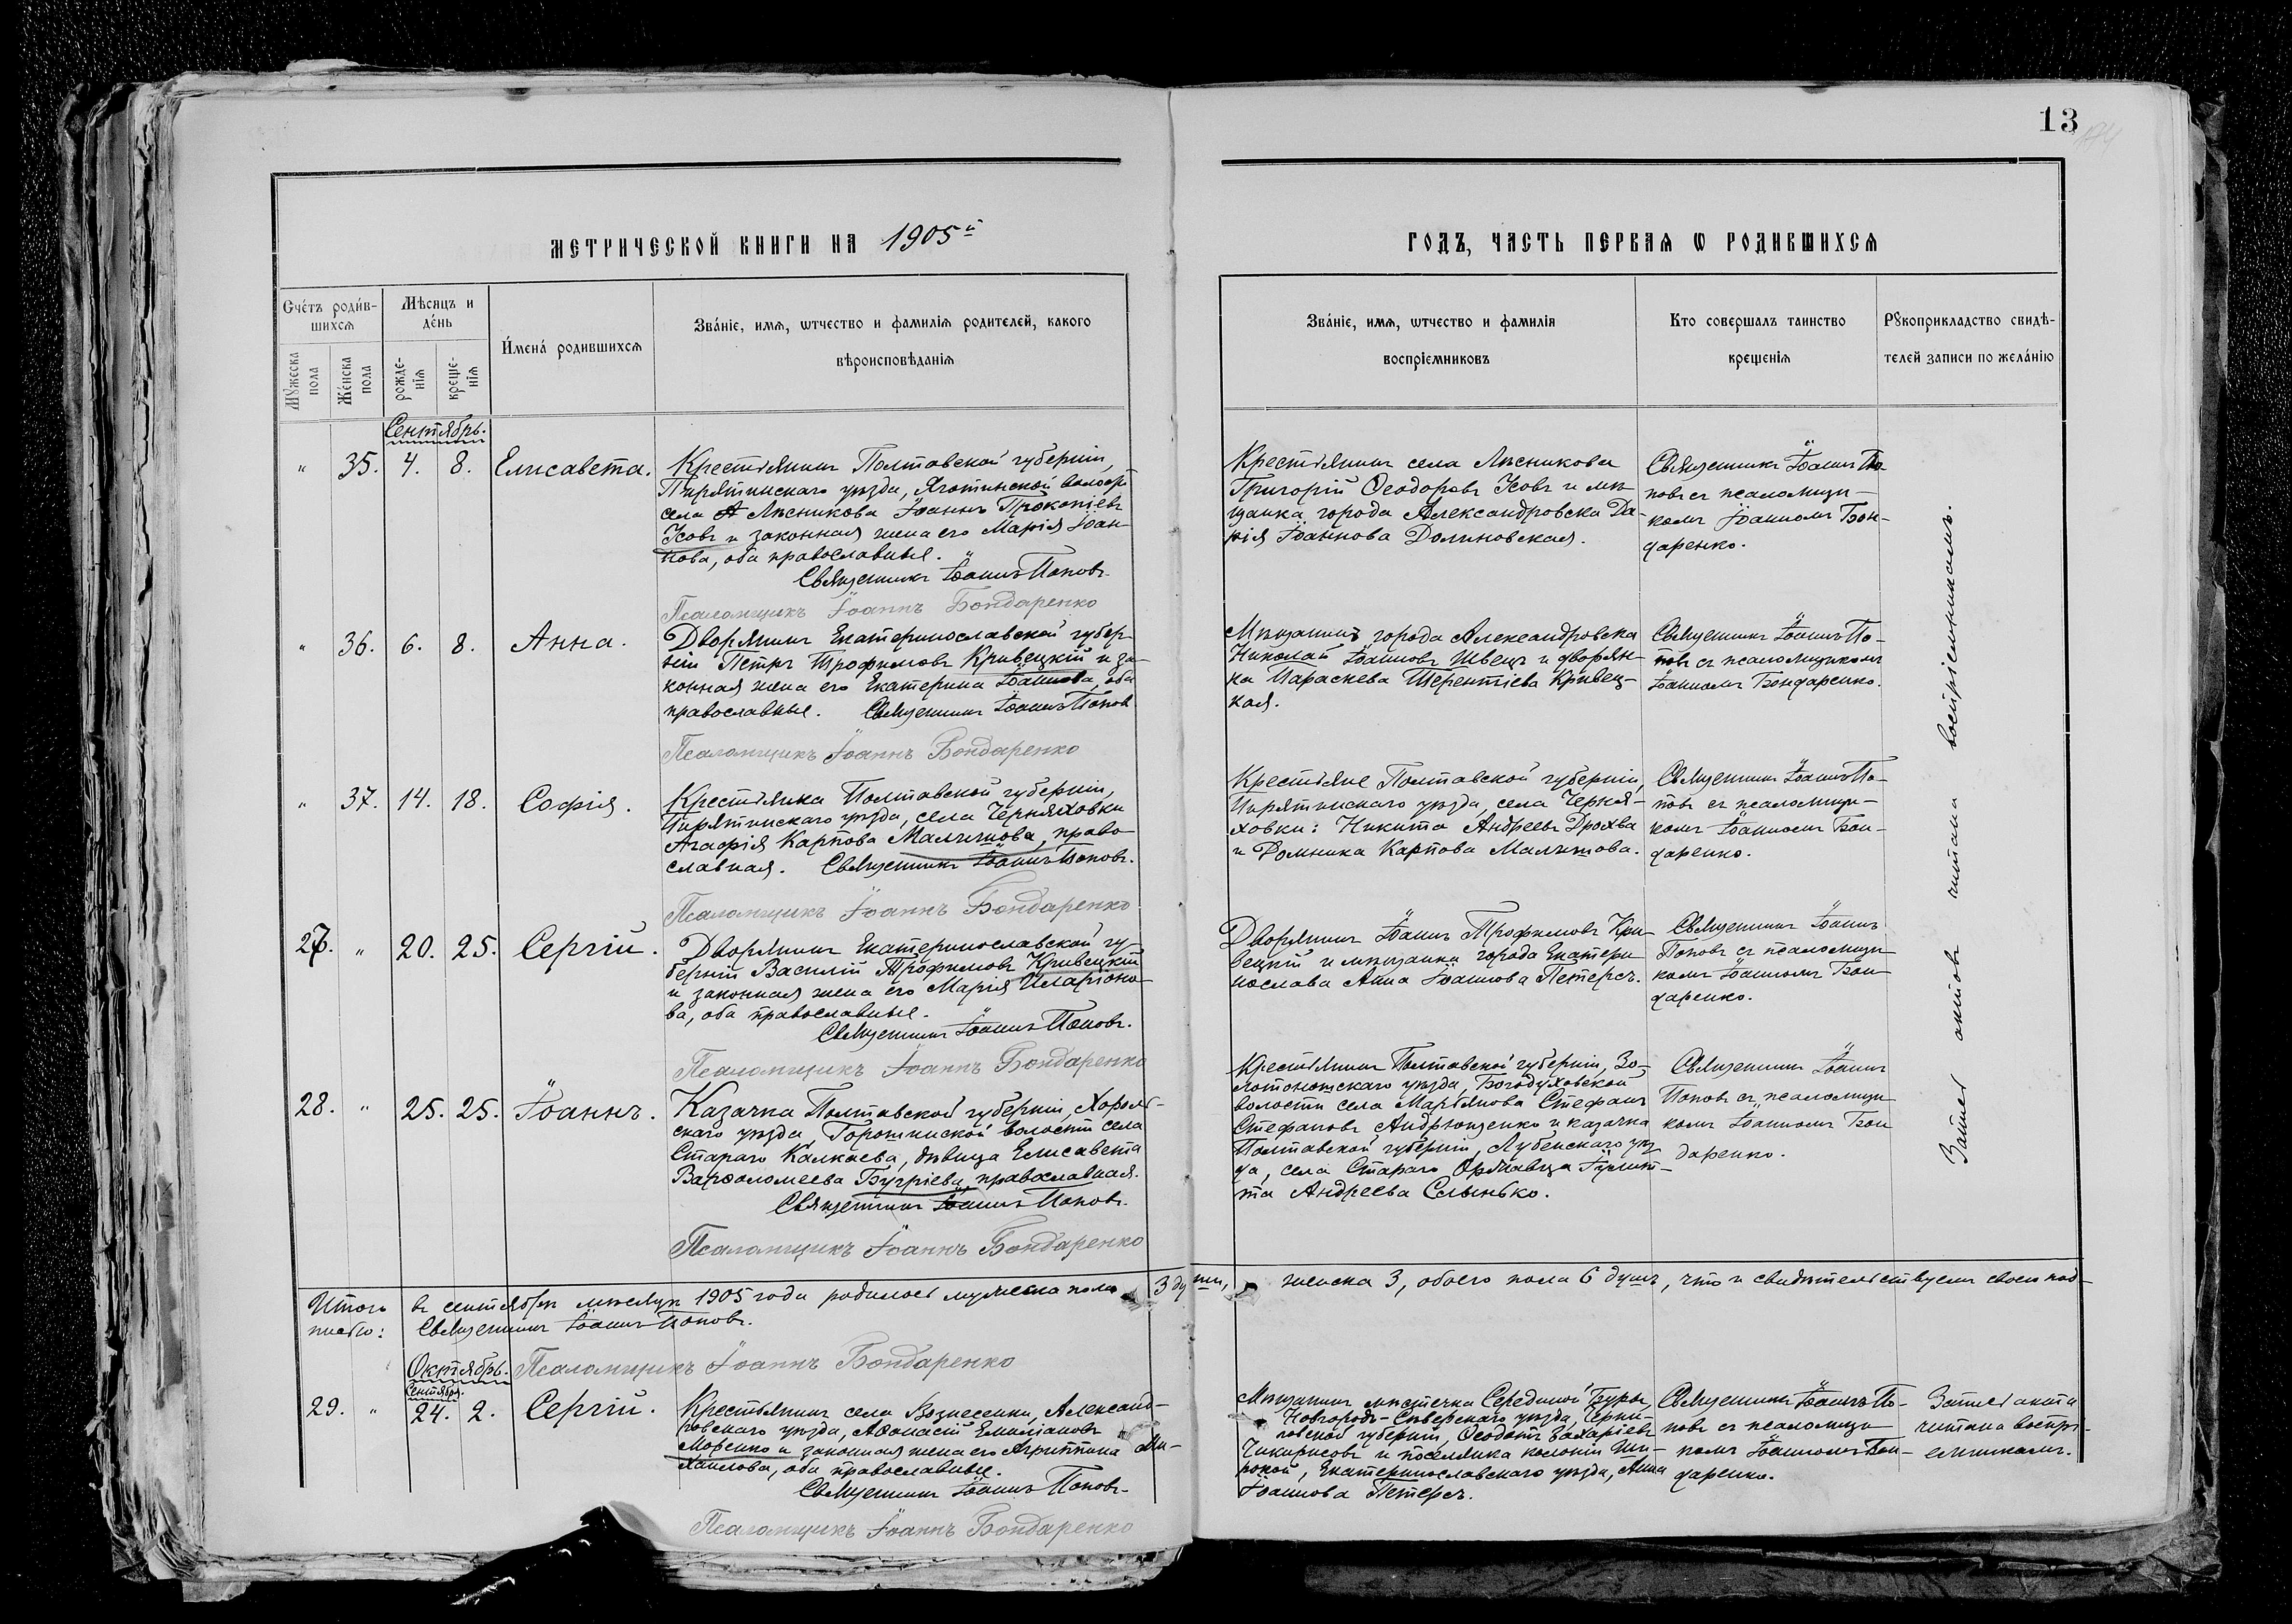 13
174
МЕТРИЧЕСКОЙ КНИГИ НА 1905й
ГОДЪ, ЧАСТЬ ПЕРВАЯ Ѡ РОДИВШИХСЯ
Счётъ роди́в-
шихся
Мѣсяцъ и
де́нь
И́мена́ родившихся
Зва́ніе, имя, ѡтчество и фамилія родителей, какого
вѣроисповѣданія
Мꙋжеска
пола
Же́нска
пола
рожде-
нія
креще-
нія
Зва́ніе, имя, ѡтчество и фамилія
воспріемниковъ
Кто совершалъ таинство
крещенія
Рꙋкоприкладство свидѣ-
телей записи по жела́нію
Сентябрь.
" 35. 4. 8. Елисавета.
Крестьянинъ Полтавской губерніи,
Пирятинскаго уѣзда, Яготинской волости
села Лѣсникова Іоаннъ Прокопіевъ
Усовъ и законная жена его Марія Іоан-
нова, оба православные.
Священникъ Іоаннъ Поповъ.
Псаломщикъ Іоаннъ Бондаренко
Крестьянинъ села Лѣсникова
Григорій Ѳеодоровъ Усовъ и мѣ-
щанка города Александровска Да-
рія Іоаннова Долиновская.
Священникъ Іоаннъ По-
повъ съ псаломщи-
комъ Іоанномъ Бон-
даренко.
" 36. 6. 8. Анна.
Дворянинъ Екатеринославской губер-
ніи Петръ Трофимовъ Кривецкій и за-
конная жена его Екатерина Іоаннова, оба
православные. Священникъ Іоаннъ Поповъ
Псаломщикъ Іоаннъ Бондаренко
Мѣщанинъ города Александровска
Николай Іоанновъ Швецъ и дворян-
ка Параскева Терентіева Кривец-
кая.
Священникъ Іоаннъ По-
повъ съ псаломщикомъ
Іоанномъ Бондаренко.
" 37. 14. 18. Софія.
Крестьянка Полтавской губерніи,
Пирятинскаго уѣзда, села Черняховки
Агафія Карпова Малышова, право-
славная. Священникъ Іоаннъ Поповъ.
Псаломщикъ Іоаннъ Бондаренко
Крестьяне Полтавской губерніи,
Пирятинскаго уѣзда, села Черня-
ховки: Никита Андреевъ Дрохва
и Домника Карпова Малышова.
Священникъ Іоаннъ По-
повъ съ псаломщи-
комъ Іоанномъ Бон-
даренко.
27. " 20. 25. Сергій.
Дворянинъ Екатеринославской гу-
берніи Василій Трофимовъ Кривецкій
и законная жена его Марія Иларіоно-
ва, оба православные.
Священникъ Іоаннъ Поповъ.
Псаломщикъ Іоаннъ Бондаренко
Дворянинъ Іоаннъ Трофимовъ Кри-
вецкій и мѣщанка города Екатери-
нослава Анна Іоаннова Петерсъ.
Священникъ Іоаннъ
Поповъ съ псаломщи-
комъ Іоанномъ Бон-
даренко.
28. " 25. 25. Іоаннъ.
Казачка Полтавской губерніи, Хороль-
скаго уѣзда, Горошинской волости села
Стараго Калкаева, дѣвица Елисавета
Варѳоломеева Бугріева, православная.
Священникъ Іоаннъ Поповъ.
Псаломщикъ Іоаннъ Бондаренко
Крестьянинъ Полтавской губерніи, Зо-
лотоношскаго уѣзда, Богодуховской
волости села Марьянова Стефанъ
Стефановъ Андрющенко и казачка
Полтавской губерніи, Лубенскаго уѣз-
да, села Стараго Оржавца Іулит-
та Андреева Слынько.
Священникъ Іоаннъ
Поповъ съ псаломщи-
комъ Іоанномъ Бон-
даренко.
Записъ актовъ читана воспріемникамъ.
Итого въ сентябрѣ мѣсяцѣ 1905 года родилось мужеска пола 3 души, женска 3, обоего пола 6 душъ, что и свидѣтельствуемъ своею под-
писью: Священникъ Іоаннъ Поповъ.
Псаломщикъ Іоаннъ Бондаренко
Октябрь.
Сентября.
29. " 24. 2. Сергій.
Крестьянинъ села Вознесенки, Александ-
ровскаго уѣзда, Аѳанасій Емиліановъ
Моренко и законная жена его Агриппина Ми-
хаилова, оба православные.
Священникъ Іоаннъ Поповъ.
Псаломщикъ Іоаннъ Бондаренко
Мѣщанинъ мѣстечка Серединой Буды,
Новгородъ-Сѣверскаго уѣзда, Черни-
говской губерніи, Ѳеодотъ Захаріевъ
Чикирисовъ и поселянка колоніи Ши-
рокой, Екатеринославскаго уѣзда, Анна
Іоаннова Петерсъ.
Священникъ Іоаннъ По-
повъ съ псаломщи-
комъ Іоанномъ Бон-
даренко.
Запись акта
читана воспрі-
емникамъ.